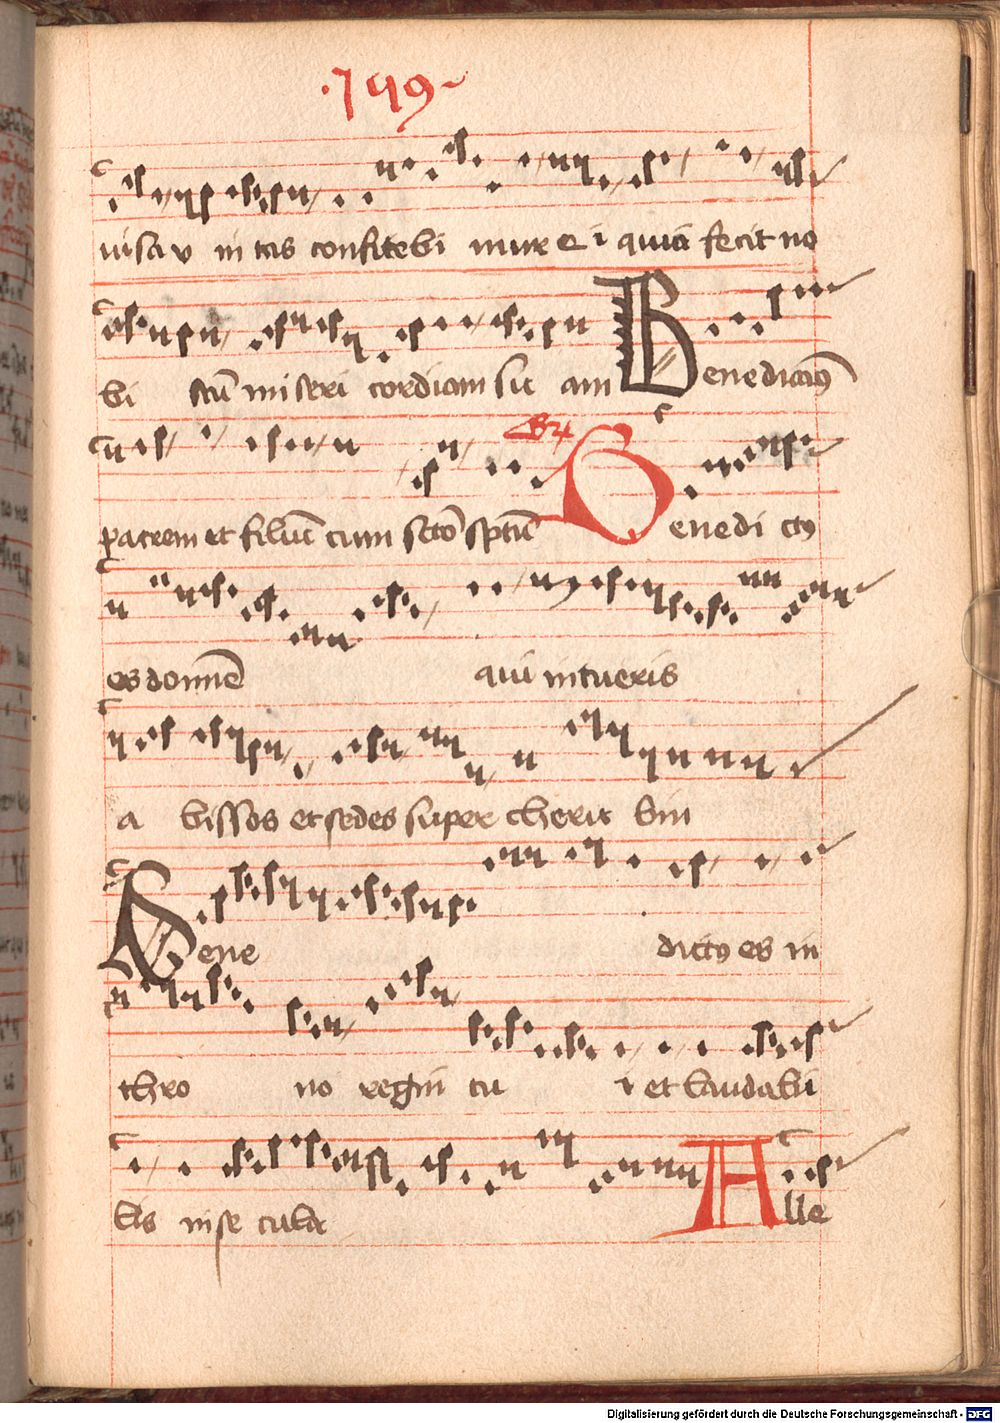 ·149·
uisa v ni tas confitebi mur e i quia fecit no
bi scū miseri cordiam su am Benedictꝰ
patrem et filiū cum scto spū Benedi ctꝰ
es domine qui intueris
a bissos et sedes super cheru bin
Bene dictꝰ es in
thro no regni tu i et lauda bi
lis in se cula Alle
Digitalisierung gefördert durch die Deutsche Forschungsgemeinschaft - DFG